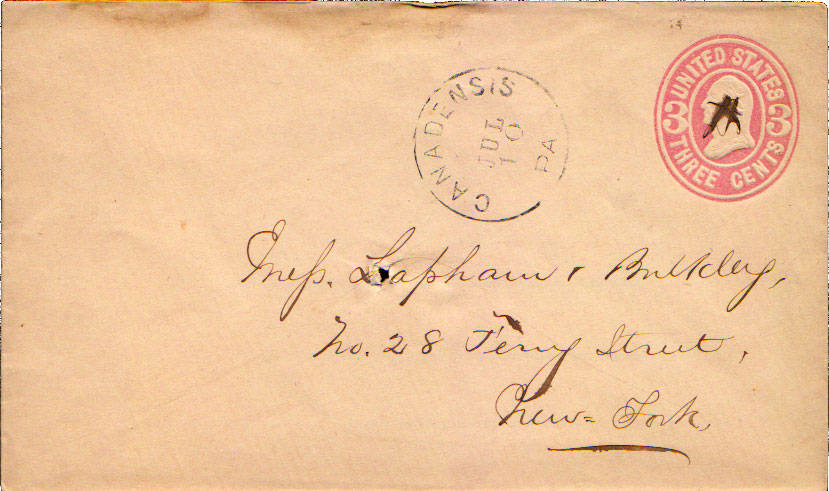 CANADENSIS PA
JUL
10
UNITED STATES
3 3
THREE CENTS
Mess. Lapham & Bulkley,
No. 28 Ferry Street,
New=York,